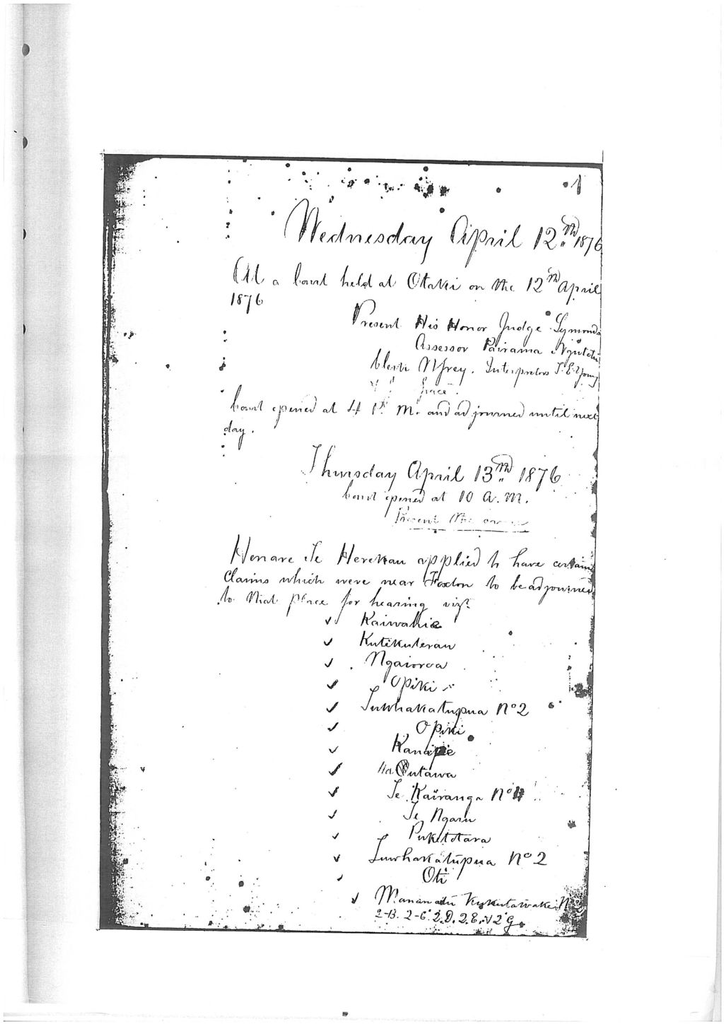 1
Wednesday April 12th 1876
At a Court held at Otaki on the 12th April
1876
Present His Honor Judge Symonds
Assessor Pairama Ngutuki
Clerk Nfrey. Interpreters T.E. Young
Grace
Court opened at 4 P.M. and adjourned until next
day.
Thursday April 13th 1876
Court opened at 10 A.M.
Present the same
Henare Te Herekau applied to have certain
Claims which were near Foxton to be adjourned
to that place for hearing viz.
✓ Kaiwahie
✓ Kutikuterau
✓ Ngaioroa
✓ Opiki
✓ Tuwhakatupua No 2
✓ Opiki
✓ Kanape
✓ Outawa
✓ Te Kairanga No
✓ Te Ngaru
✓ Puketotara
✓ Tuwhakatupua No 2
✓ Oti
✓ Manawatu Kukutauaki No
2-B. 2-C. 2.D. 2.E. 2 G.